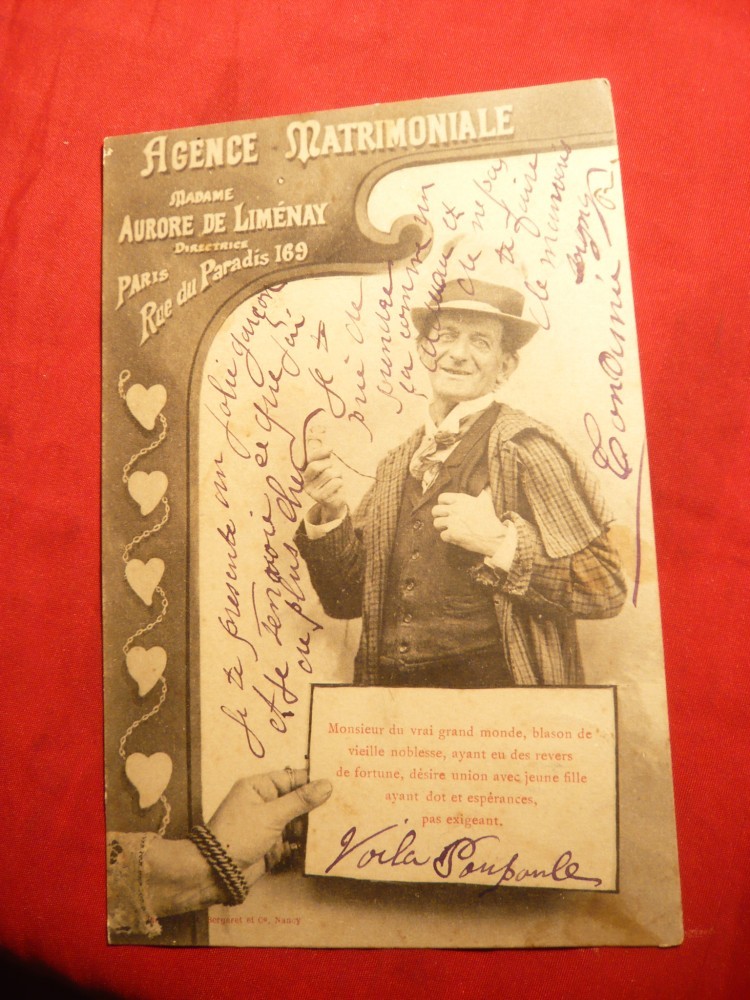 AGENCE MATRIMONIALE
MADAME
AURORE DE LIMÉNAY
DIRECTRICE
PARIS
Rue du Paradis 169
Je te presente un jolie garçon
et je t'envoie ce que j'ai
de plus cher
Je te
prie de
prendre
ça comme un
et
de ne pas
te faire
de mauvais
Monsieur du vrai grand monde, blason de
vieille noblesse, ayant eu des revers
de fortune, désire union avec jeune fille
ayant dot et espérances,
pas exigeant.
Voila Poupoule
Bergeret et Co, Nancy